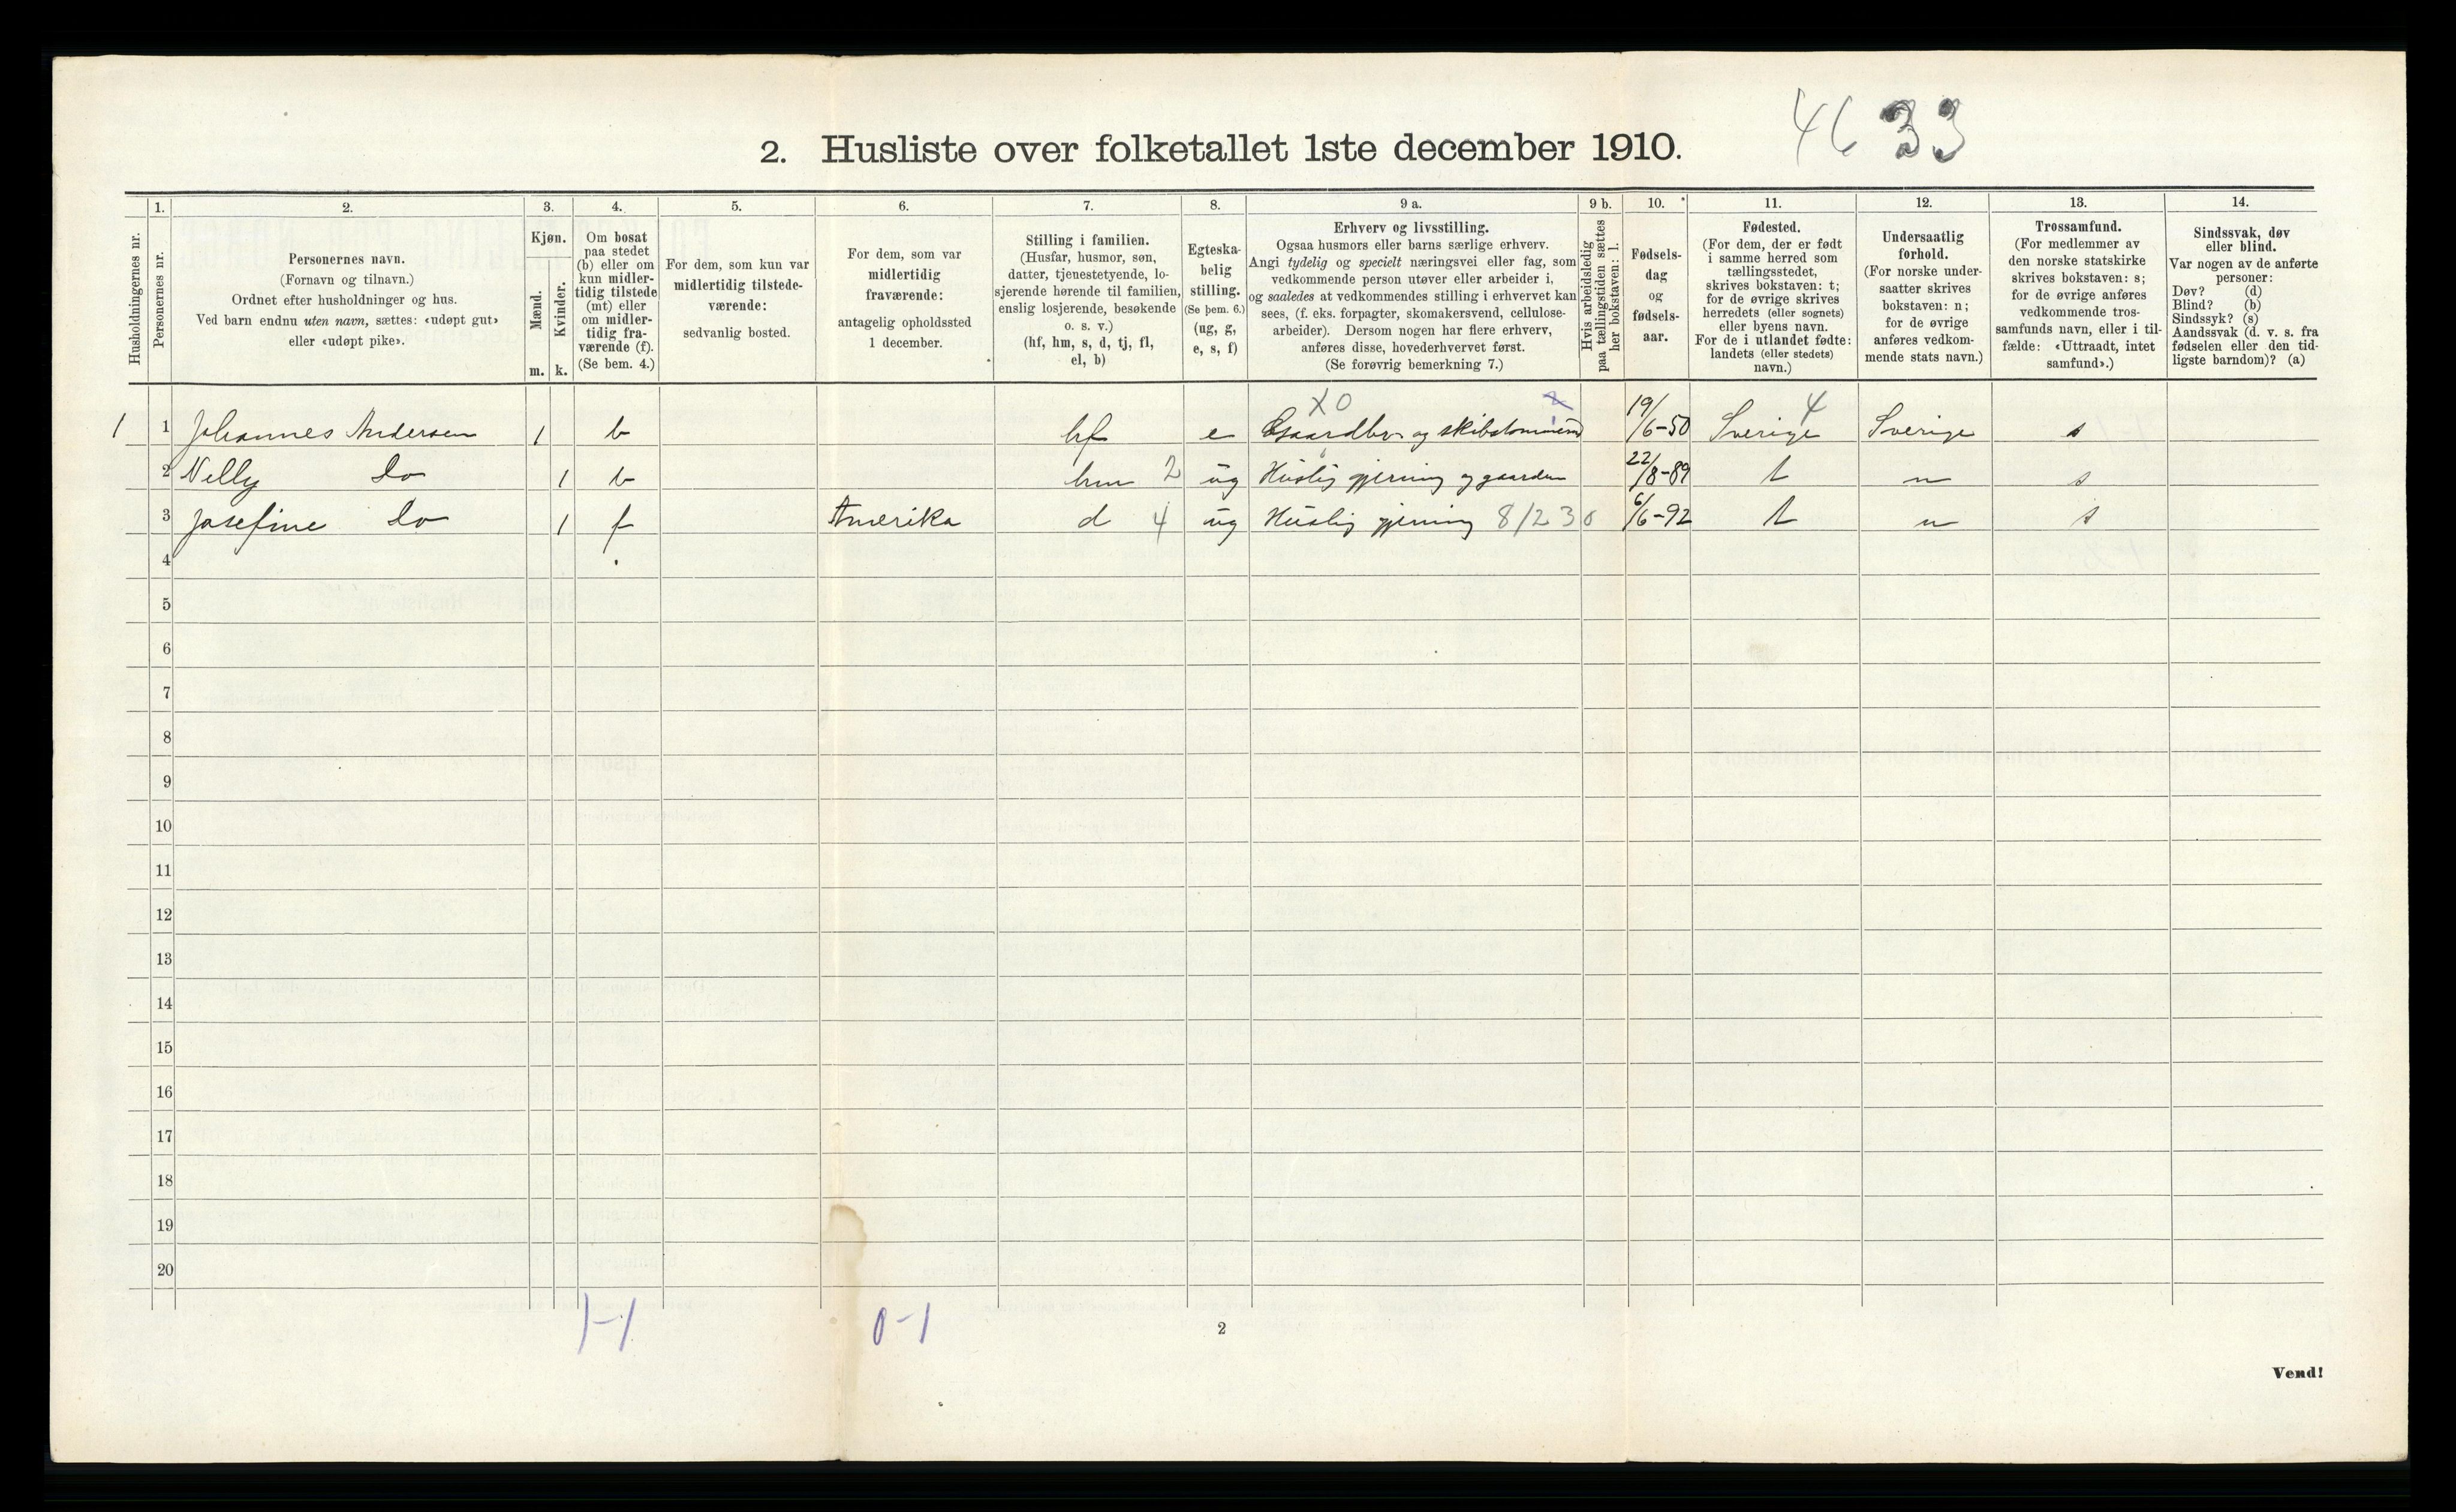 4633
2. Husliste over folketallet 1ste december 1910.
Husholdningernes nr.
1.
Personernes nr.
2.
Personernes navn.
(Fornavn og tilnavn.)
Ordnet efter husholdninger og hus.
Ved barn endnu uten navn, sættes: «udøpt gut»
eller «udøpt pike».
3.
Kjøn.
Mænd.
Kvinder.
m. k.
4.
Om bosat
paa stedet
(b) eller om
kun midler-
tidig tilstede
(mt) eller
om midler-
tidig fra-
værende (f).
(Se bem. 4.)
5.
For dem, som kun var
midlertidig tilstede-
værende:
sedvanlig bosted.
6.
For dem, som var
midlertidig
fraværende:
antagelig opholdssted
1 december.
7.
Stilling i familien.
(Husfar, husmor, søn,
datter, tjenestetyende, lo-
sjerende hørende til familien,
enslig losjerende, besøkende
o. s. v.)
(hf, hm, s, d, tj, fl,
el, b)
8.
Egteska-
belig
stilling.
(Se bem. 6.)
(ug, g,
e, s, f)
9 a.
Erhverv og livsstilling.
Ogsaa husmors eller barns særlige erhverv.
Angi tydelig og specielt næringsvei eller fag, som
vedkommende person utøver eller arbeider i,
og saaledes at vedkommendes stilling i erhvervet kan
sees, (f. eks. forpagter, skomakersvend, cellulose-
arbeider). Dersom nogen har flere erhverv,
anføres disse, hovederhvervet først.
(Se forøvrig bemerkning 7.)
9 b.
Hvis arbeidsledig
paa tællingstiden sættes
her bokstaven: l.
10.
Fødsels-
dag
og
fødsels-
aar.
11.
Fødested.
(For dem, der er født
i samme herred som
tællingsstedet,
skrives bokstaven: t;
for de øvrige skrives
herredets (eller sognets)
eller byens navn.
For de i utlandet fødte:
landets (eller stedets)
navn.)
12.
Undersaatlig
forhold.
(For norske under-
saatter skrives
bokstaven: n;
for de øvrige
anføres vedkom-
mende stats navn.)
13.
Trossamfund.
(For medlemmer av
den norske statskirke
skrives bokstaven: s;
for de øvrige anføres
vedkommende tros-
samfunds navn, eller i til-
fælde: «Uttraadt, intet
samfund».)
14.
Sindssvak, døv
eller blind.
Var nogen av de anførte
personer:
Døv? (d)
Blind? (b)
Sindssyk? (s)
Aandssvak (d. v. s. fra
fødselen eller den tid-
ligste barndom)? (a)
X0 4
1 1 Johannes Andersen 1 b hf e Gaardbr og skibstømmerm 19/6-50 Sverige Sverige s
2 Nelly Do 1 b hm 2 ug Huslig gjerning og gaarden 22/8-89 t n s
3 Josefine Do 1 f Amerika d 4 ug Huslig gjerning 8/230 6/6-92 t n s
4
5
6
7
8
9
10
11
12
13
14
15
16
17
18
19
20
1-1 0-1
2
Vend!